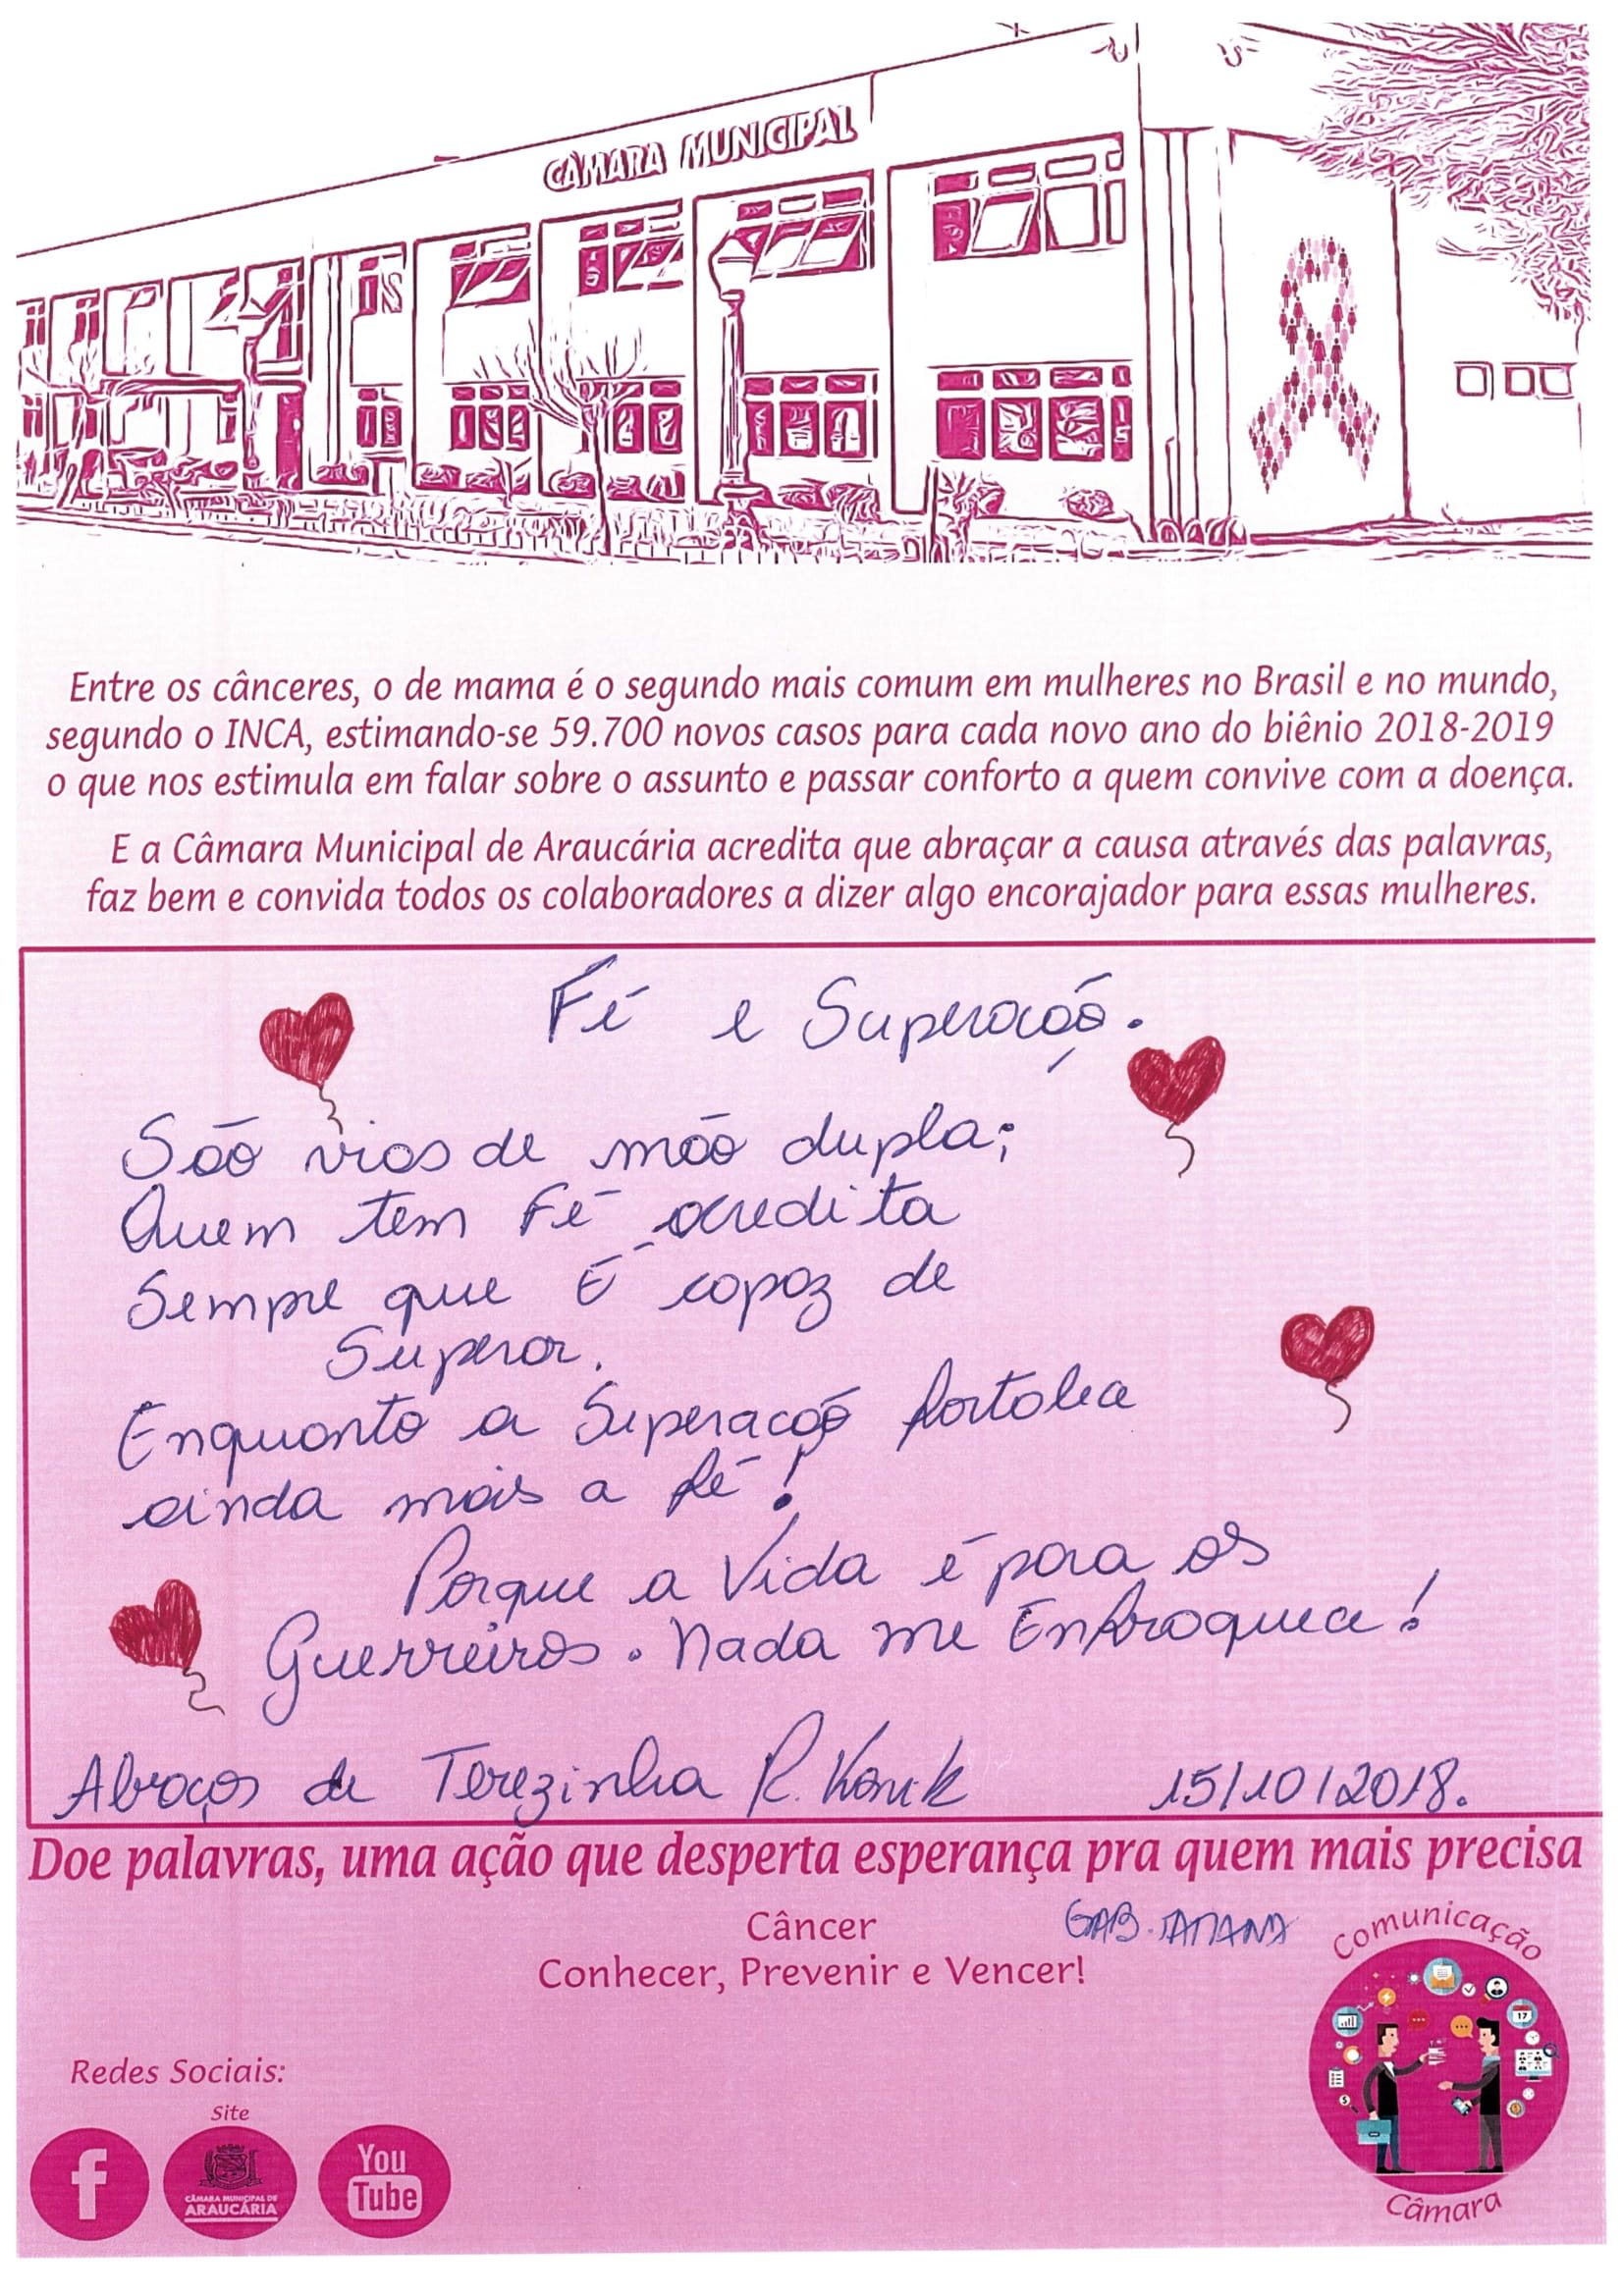 CÂMARA MUNICIPAL
Entre os cânceres, o de mama é o segundo mais comum em mulheres no Brasil e no mundo,
segundo o INCA, estimando-se 59.700 novos casos para cada novo ano do biênio 2018-2019
o que nos estimula em falar sobre o assunto e passar conforto a quem convive com a doença.
E a Câmara Municipal de Araucária acredita que abraçar a causa através das palavras,
faz bem e convida todos os colaboradores a dizer algo encorajador para essas mulheres.
Fé e Superação.
São vias de mão dupla;
Quem tem Fé acredita
Sempre que É capaz de
Superar.
Enquanto a Superação fortalece
ainda mais a fé!
Porque a Vida é para os
Guerreiros. Nada me Enfraquece!
Abraços de Terezinha R. 15/10/2018.
Doe palavras, uma ação que desperta esperança pra quem mais precisa
Câncer
GAB. TATIANA
Conhecer, Prevenir e Vencer!
Comunicação
17
Câmara
Redes Sociais:
Site
f
CÂMARA MUNICIPAL DE
ARAUCÁRIA
You
Tube